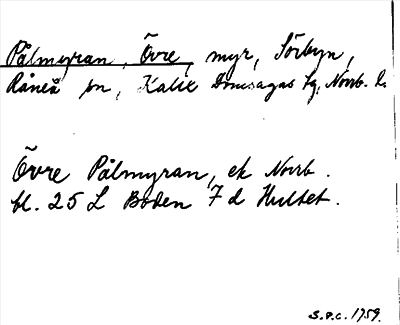 Pålmyran, Övre, myr, Sörbyn,
Råneå sn, Kalix Domsagas tg, Norrb. l.
Övre Pålmyran, ek Norrb.
bl. 25 L Boden 7 d Hultet.
S.O.C. 1759.